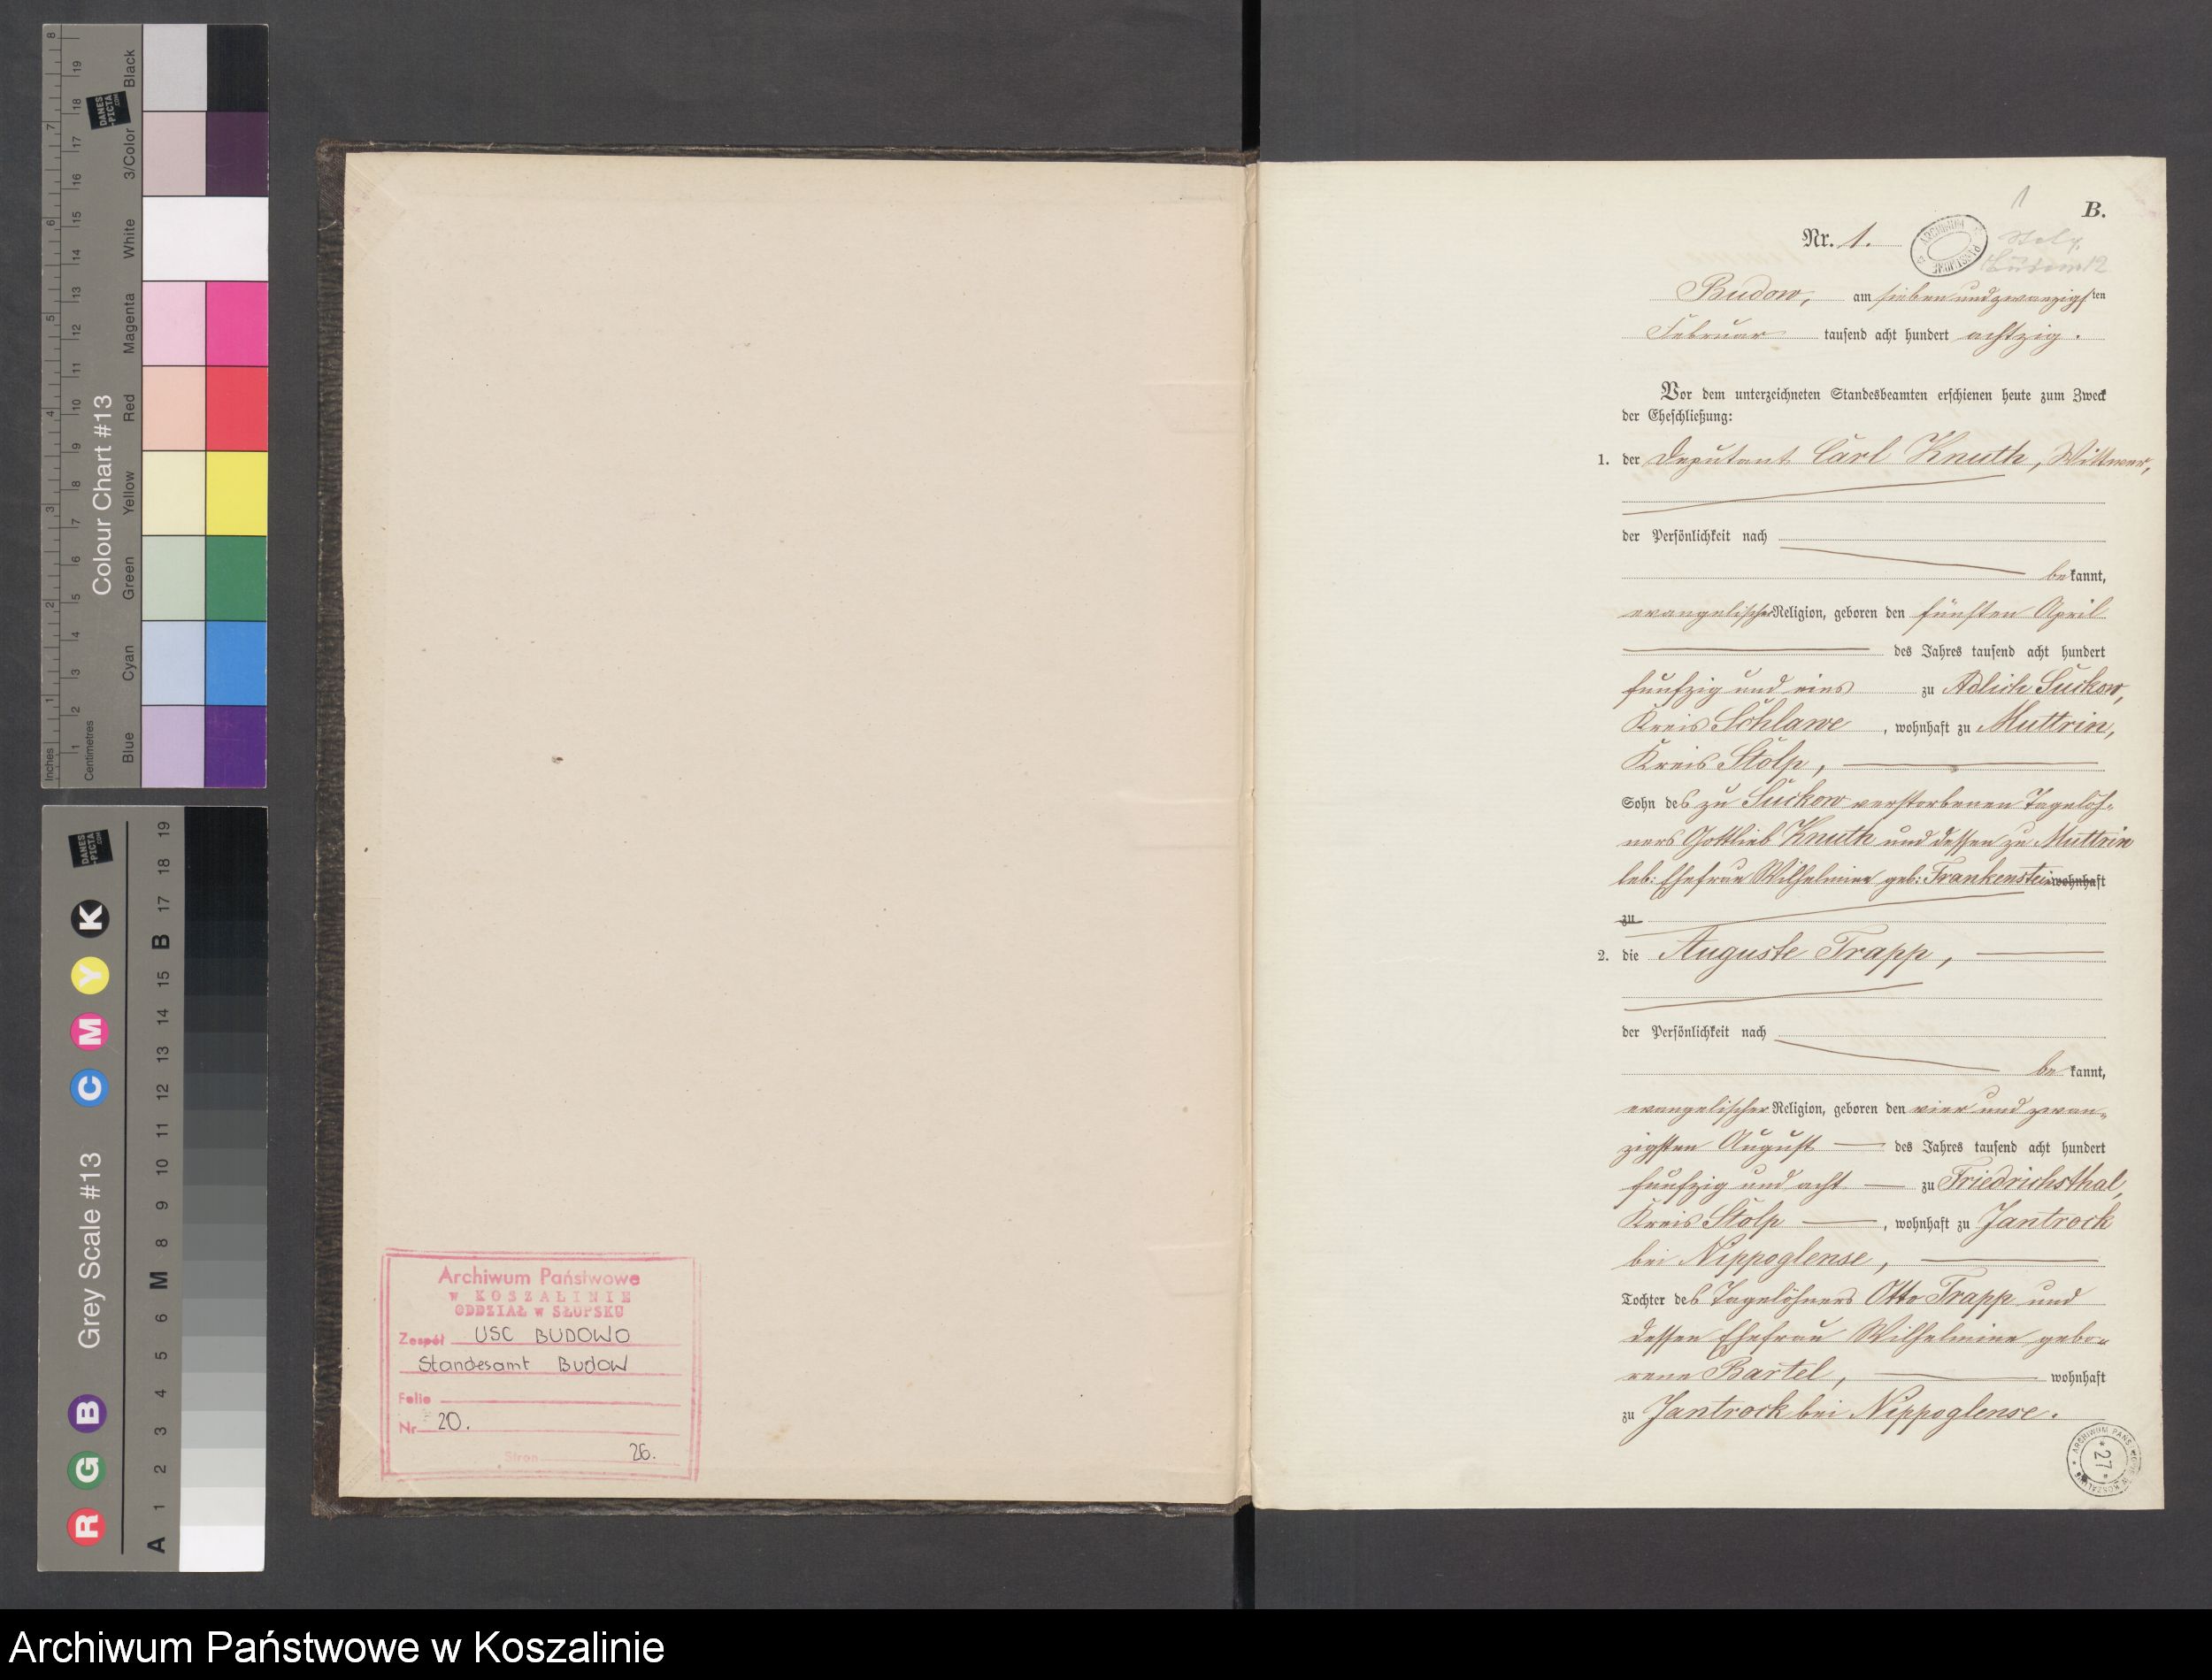 Archiwum Państwowe
w KOSZALINIE
ODDZIAŁ w SŁUPSKU
Zespół USC BUDOWO
Standesamt Budow
Folio
Nr 20.
Stron 26.
1
B.
Nr. 1.
Budow, am sieben und zwanzigsten
Februar tausend acht hundert achtzig.
Vor dem unterzeichneten Standesbeamten erschienen heute zum Zweck
der Eheschließung:
1. der Deputant Carl Knuth, Wittwer,
der Persönlichkeit nach
bekannt,
evangelischer Religion, geboren den fünften April
des Jahres tausend acht hundert
funfzig und eins zu Adlich Suckow,
Kreis Schlawe, wohnhaft zu Muttrin,
Kreis Stolp,
Sohn des zu Suckow verstorbenen Tagelöh-
ners Gottlieb Knuth und dessen zu Muttrin
leb: Ehefrau Wilhelmine geb: Frankenstein wohnhaft
zu
2. die Auguste Trapp,
der Persönlichkeit nach
bekannt,
evangelischer Religion, geboren den vier und zwan-
zigsten August des Jahres tausend acht hundert
funfzig und acht zu Friedrichsthal,
Kreis Stolp, wohnhaft zu Jantrock
bei Nippoglense,
Tochter des Tagelöhners Otto Trapp und
dessen Ehefrau Wilhelmine gebo-
rene Bartel, wohnhaft
zu Jantrock bei Nippoglense.
27
Colour Chart #13
Blue Cyan Green Yellow Red Magenta White 3/Color Black
Inches 1 2 3 4 5 6 7 8
Centimetres 1 2 3 4 5 6 7 8 9 10 11 12 13 14 15 16 17 18 19
DANES-PICTA.COM
Grey Scale #13
R G B C M Y K
A 1 2 3 4 5 6 M 8 9 10 11 12 13 14 15 B 17 18 19
DANES-PICTA.COM
Archiwum Państwowe w Koszalinie